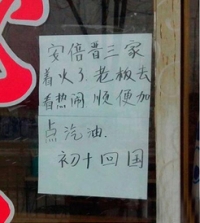 安倍晋三家
着火了.老板去
看热闹 顺便加
点汽油.
初十回国